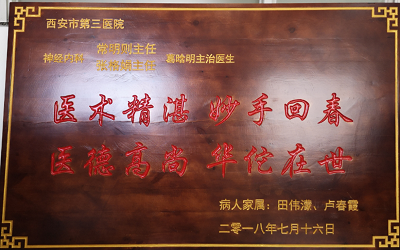 西安市第三医院
神经内科 常明则主任 袁晗明主治医生
主任
医术精湛 妙手回春
医德高尚 华佗在世
病人家属：田伟濛、卢春霞
二零一八年七月十六日